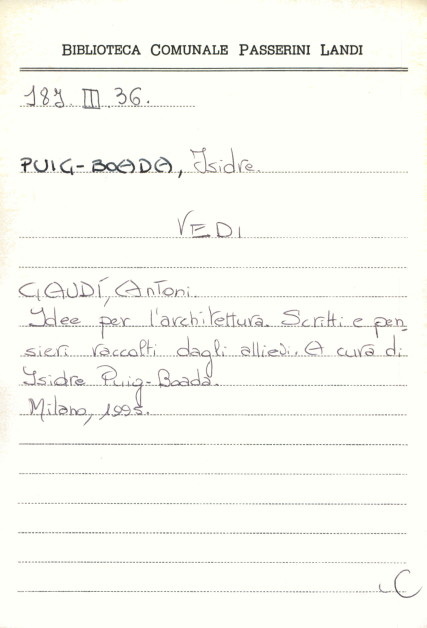 BIBLIOTECA COMUNALE PASSERINI LANDI
187. III. 36.
PUIG-BOADA, Isidre.
VEDI
GAUDÍ, Antoni.
Idee per l'architettura. Scritti e pen_
sieri raccolti dagli allievi. A cura di
Isidre Puig-Boada.
Milano, 1995.